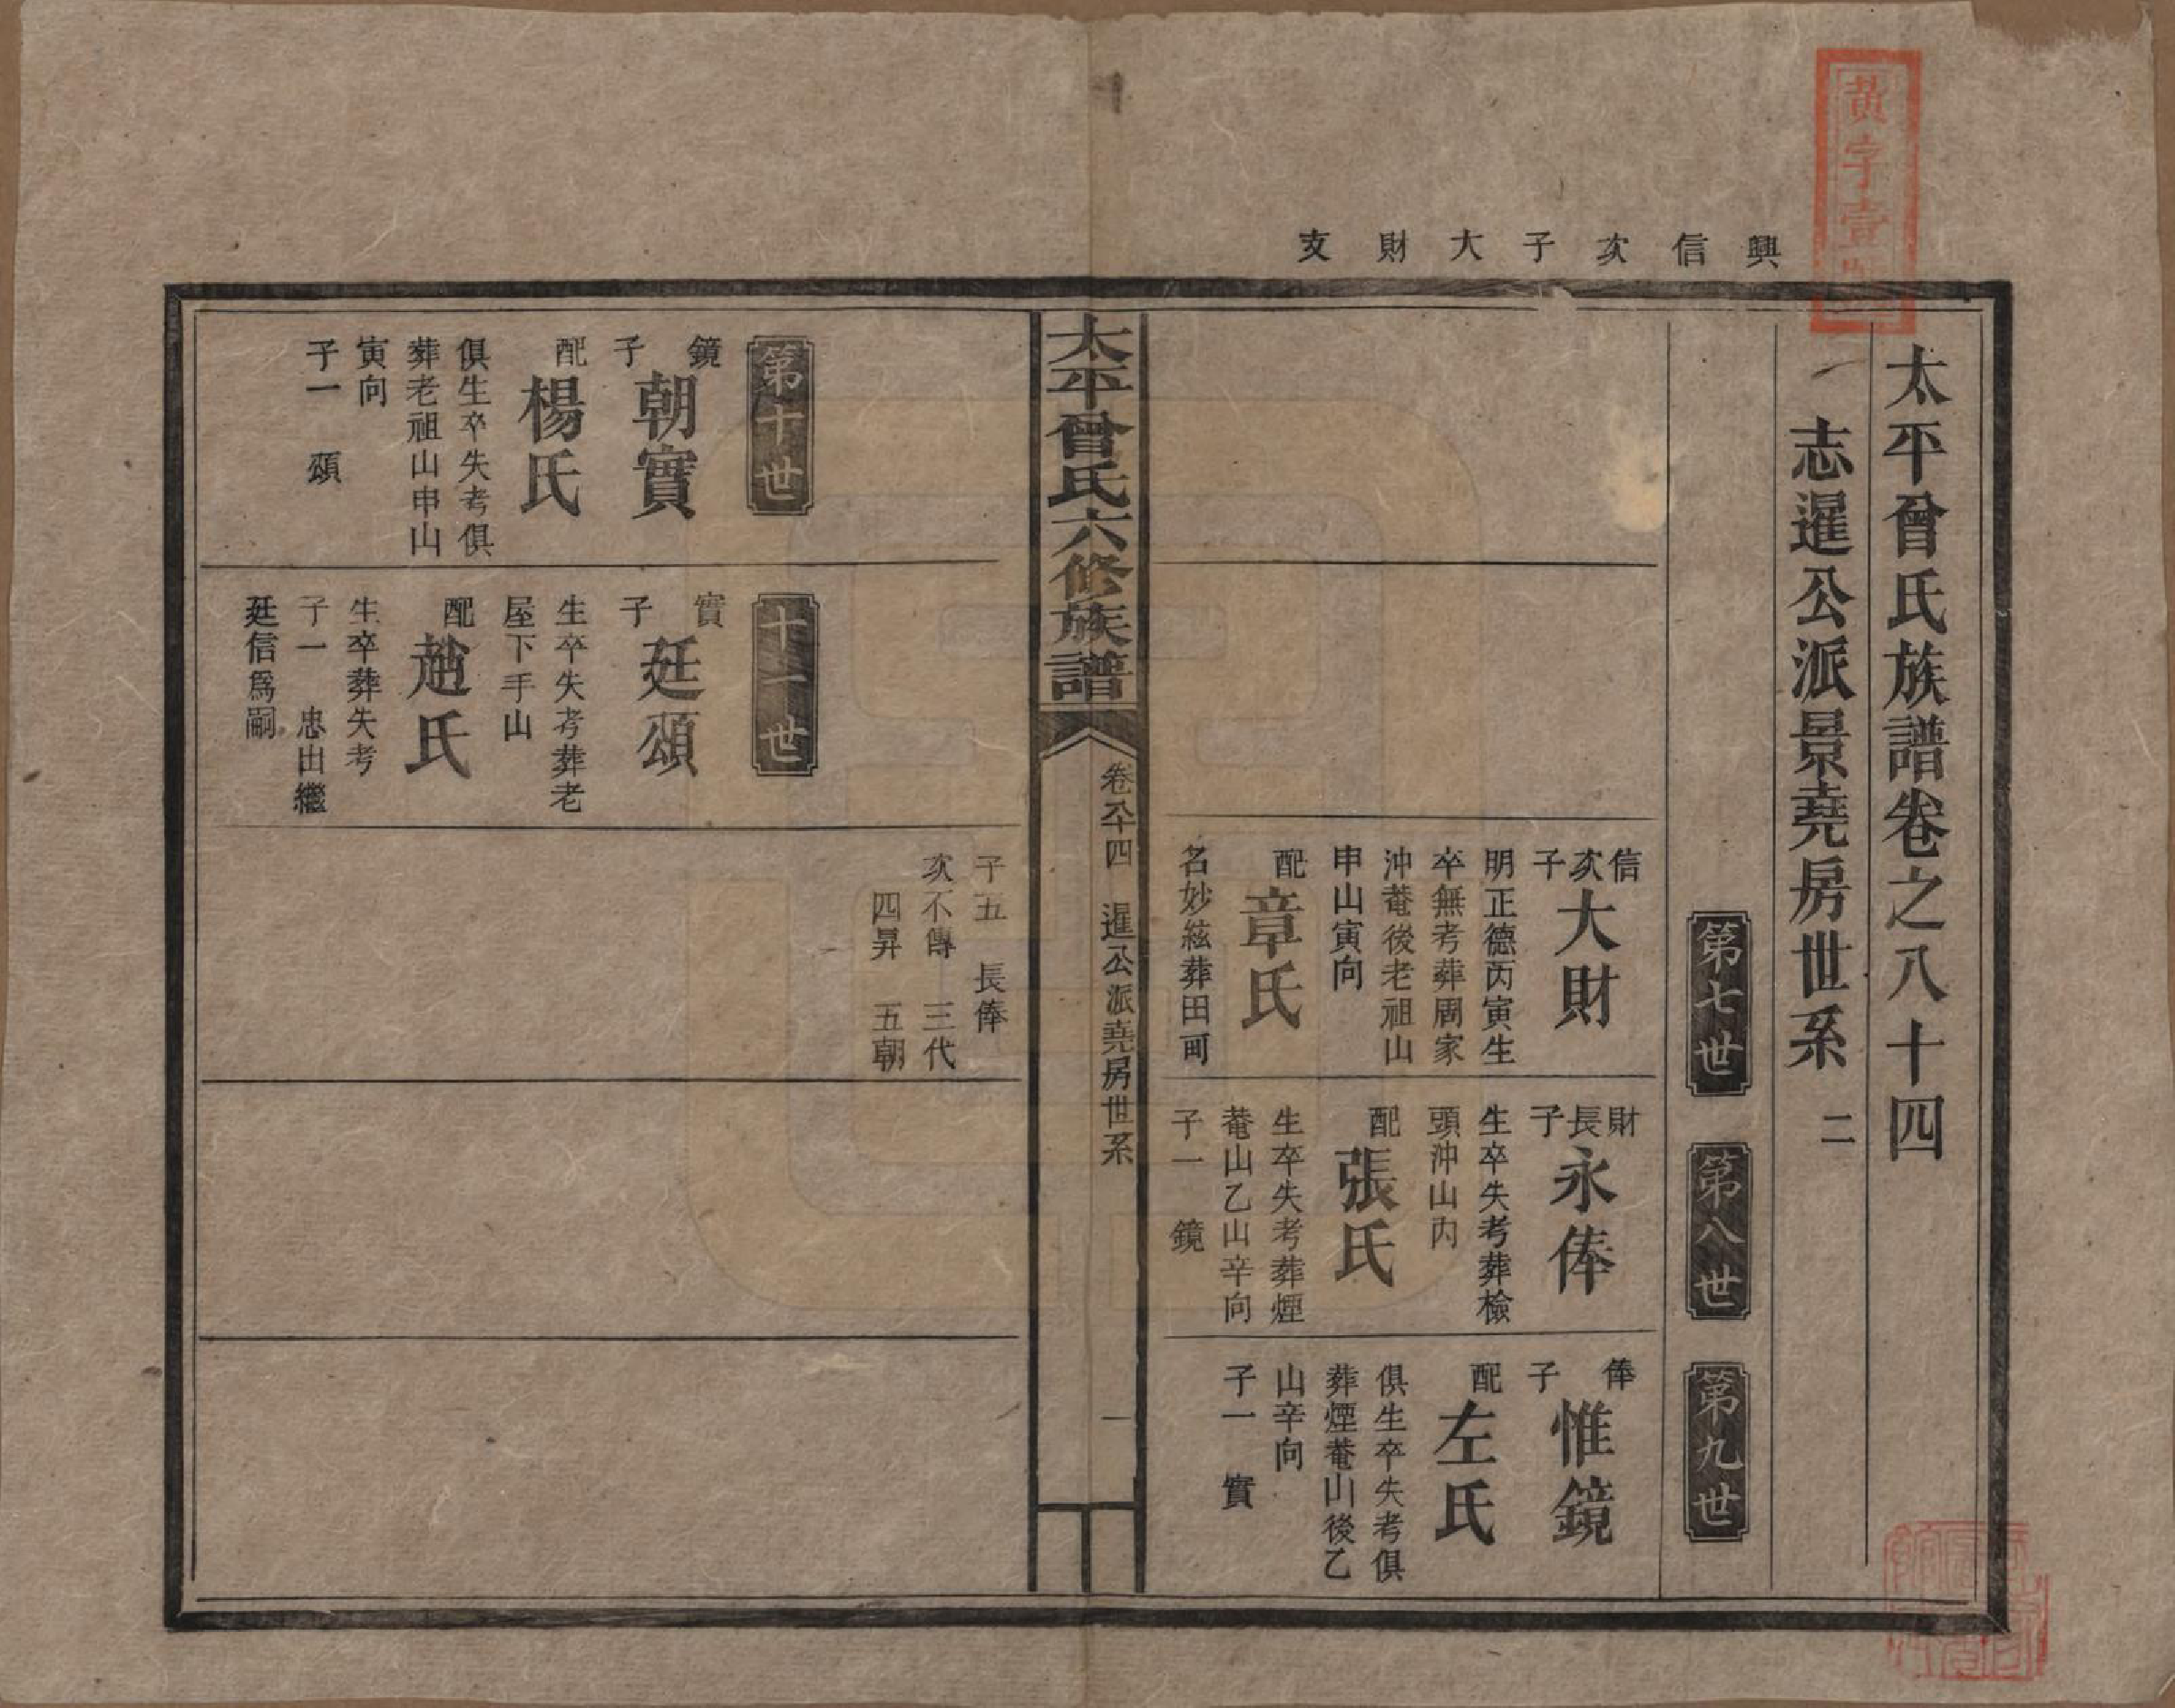 黄字壹號
興信次子大財支
太平曾氏族譜卷之八十四
志暹公派景堯房世系 二
第七世
第八世
第九世
信次子
大財
明正德丙寅生
卒無考葬周家
沖菴後老祖山
申山寅向
配
章氏
名妙絃葬田町
財長子
永俸
生卒失考葬檢
頭沖山內
配
張氏
生卒失考葬煙
菴山乙山辛向
子一 鏡
俸子
惟鏡
配
左氏
俱生卒失考俱
葬煙菴山後乙
山辛向
子一 實
太平曾氏六修族譜
卷八十四 暹公派堯房世系 一
子五 長俸
次不傳 三代
四昇 五朝
第十世
鏡子
朝實
配
楊氏
俱生卒失考俱
葬老祖山申山
寅向
子一 頌
十一世
實子
廷頌
生卒失考葬老
屋下手山
配
趙氏
生卒葬失考
子一 忠出繼
廷信爲嗣